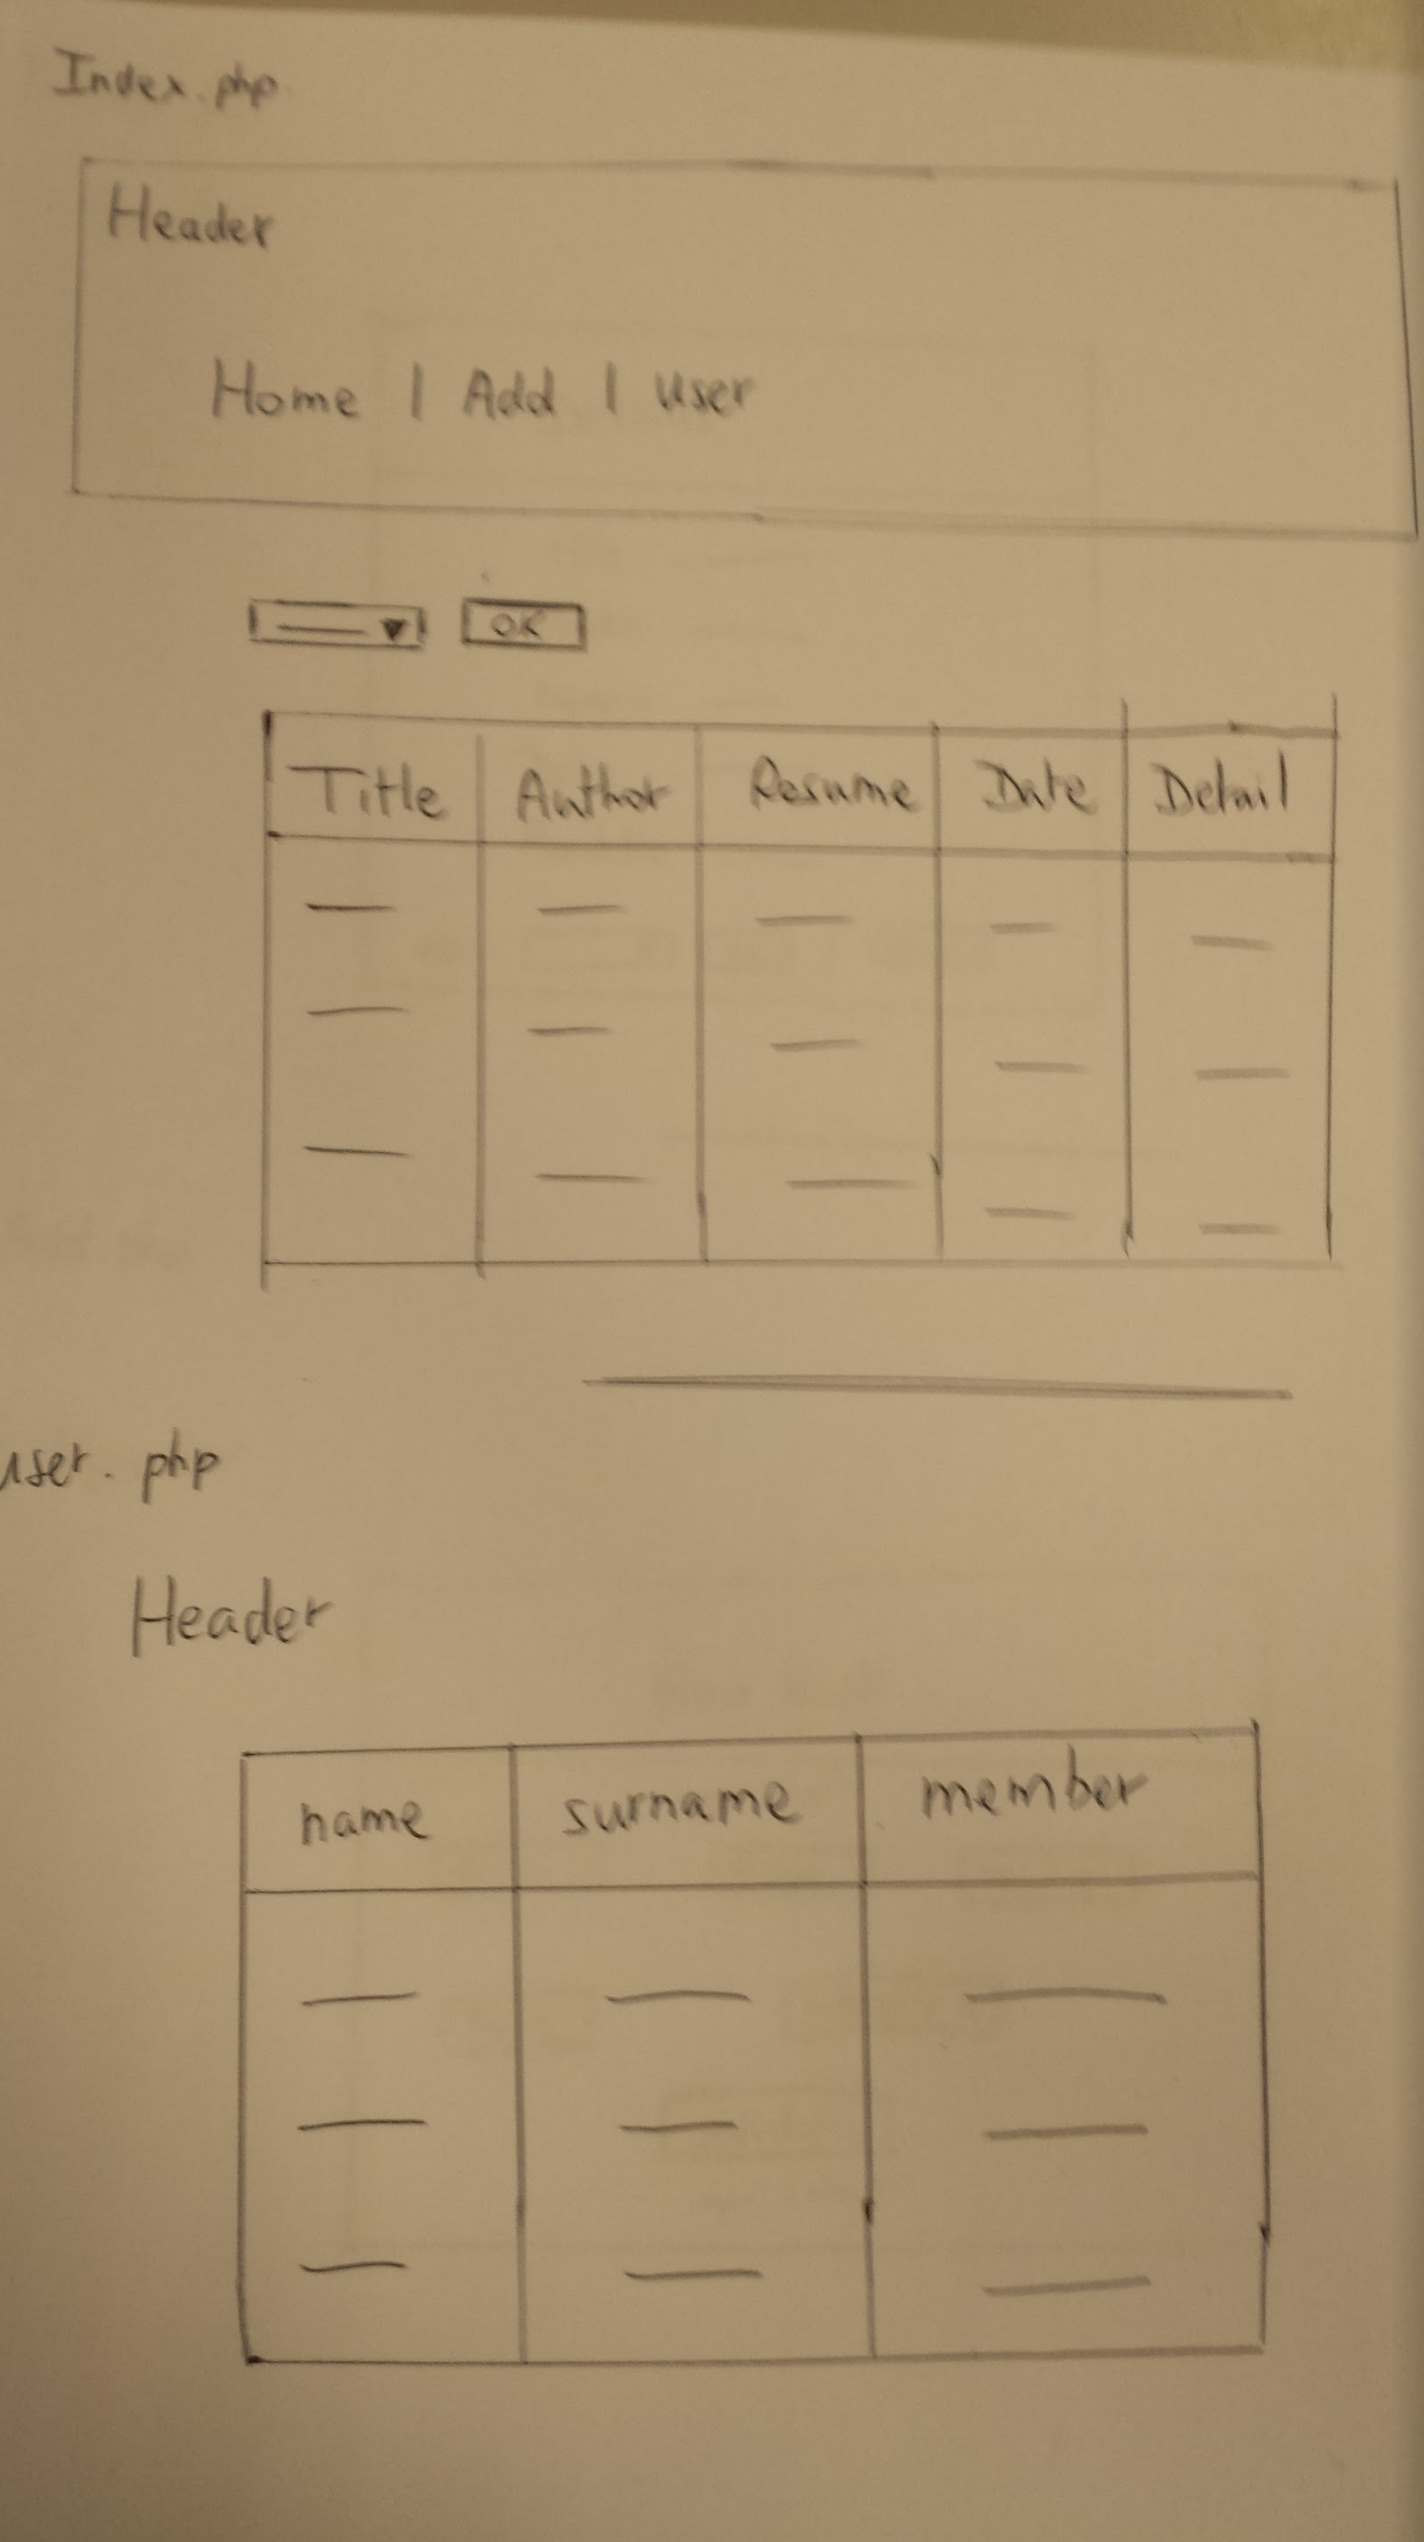 Index.php
Header
Home | Add | user
OK
Title Author Resume Date Detail
user.php
Header
name surname member